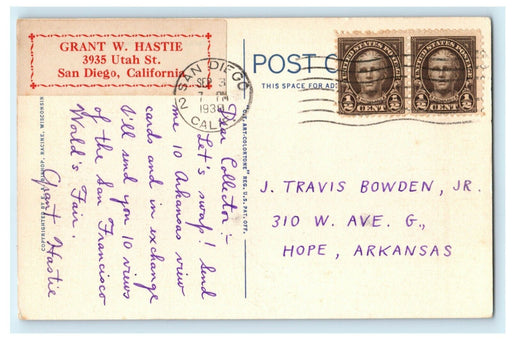 GRANT W. HASTIE
3935 Utah St.
San Diego, California
SAN DIEGO
SEP 3
193
CALIF
2
POST C
THIS SPACE FOR ADD
UNITED STATES POSTAGE
½ CENT ½
UNITED STATES POSTAGE
½ CENT ½
Dear Collector:-
Let's swap! Send
me 10 Arkansas view
cards and in exchange
I'll send you 10 views
of the San Francisco
World's Fair.
Grant Hastie
J. TRAVIS BOWDEN, JR.
310 W. AVE. G.,
HOPE, ARKANSAS
"C.T. ART-COLORTONE" REG. U.S. PAT. OFF.